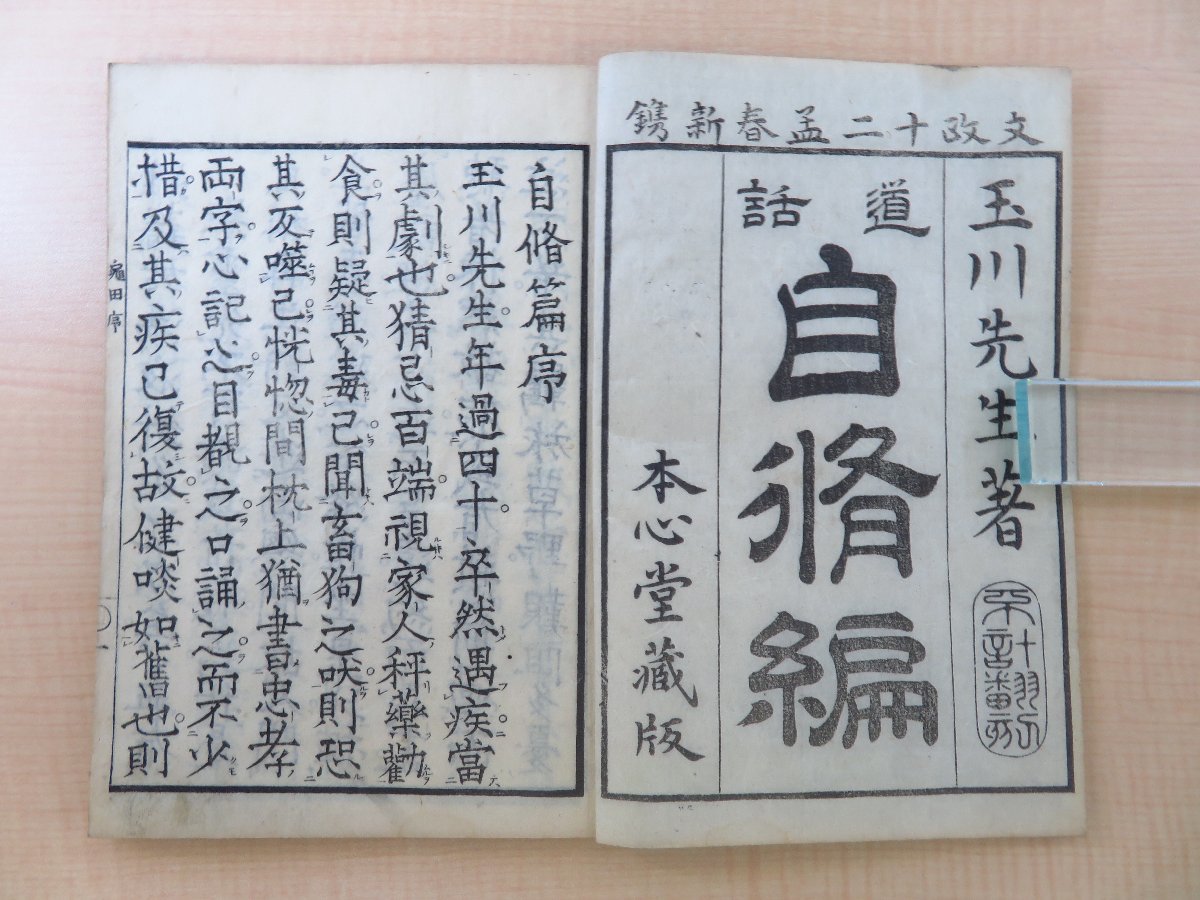 文政十二孟春新鐫
玉川先生著
道話
自脩編
本心堂藏版
自脩篇序
玉川先生年過四十卒然遇疾當
其劇也猜忌百端視家人秤藥勸
食則疑其毒己聞畜狗之吠則恐
其反噬己恍惚間枕上猶書忠孝
両字心記心目覩之口誦之而不少
措及其疾已復故健啖如舊也則
田序